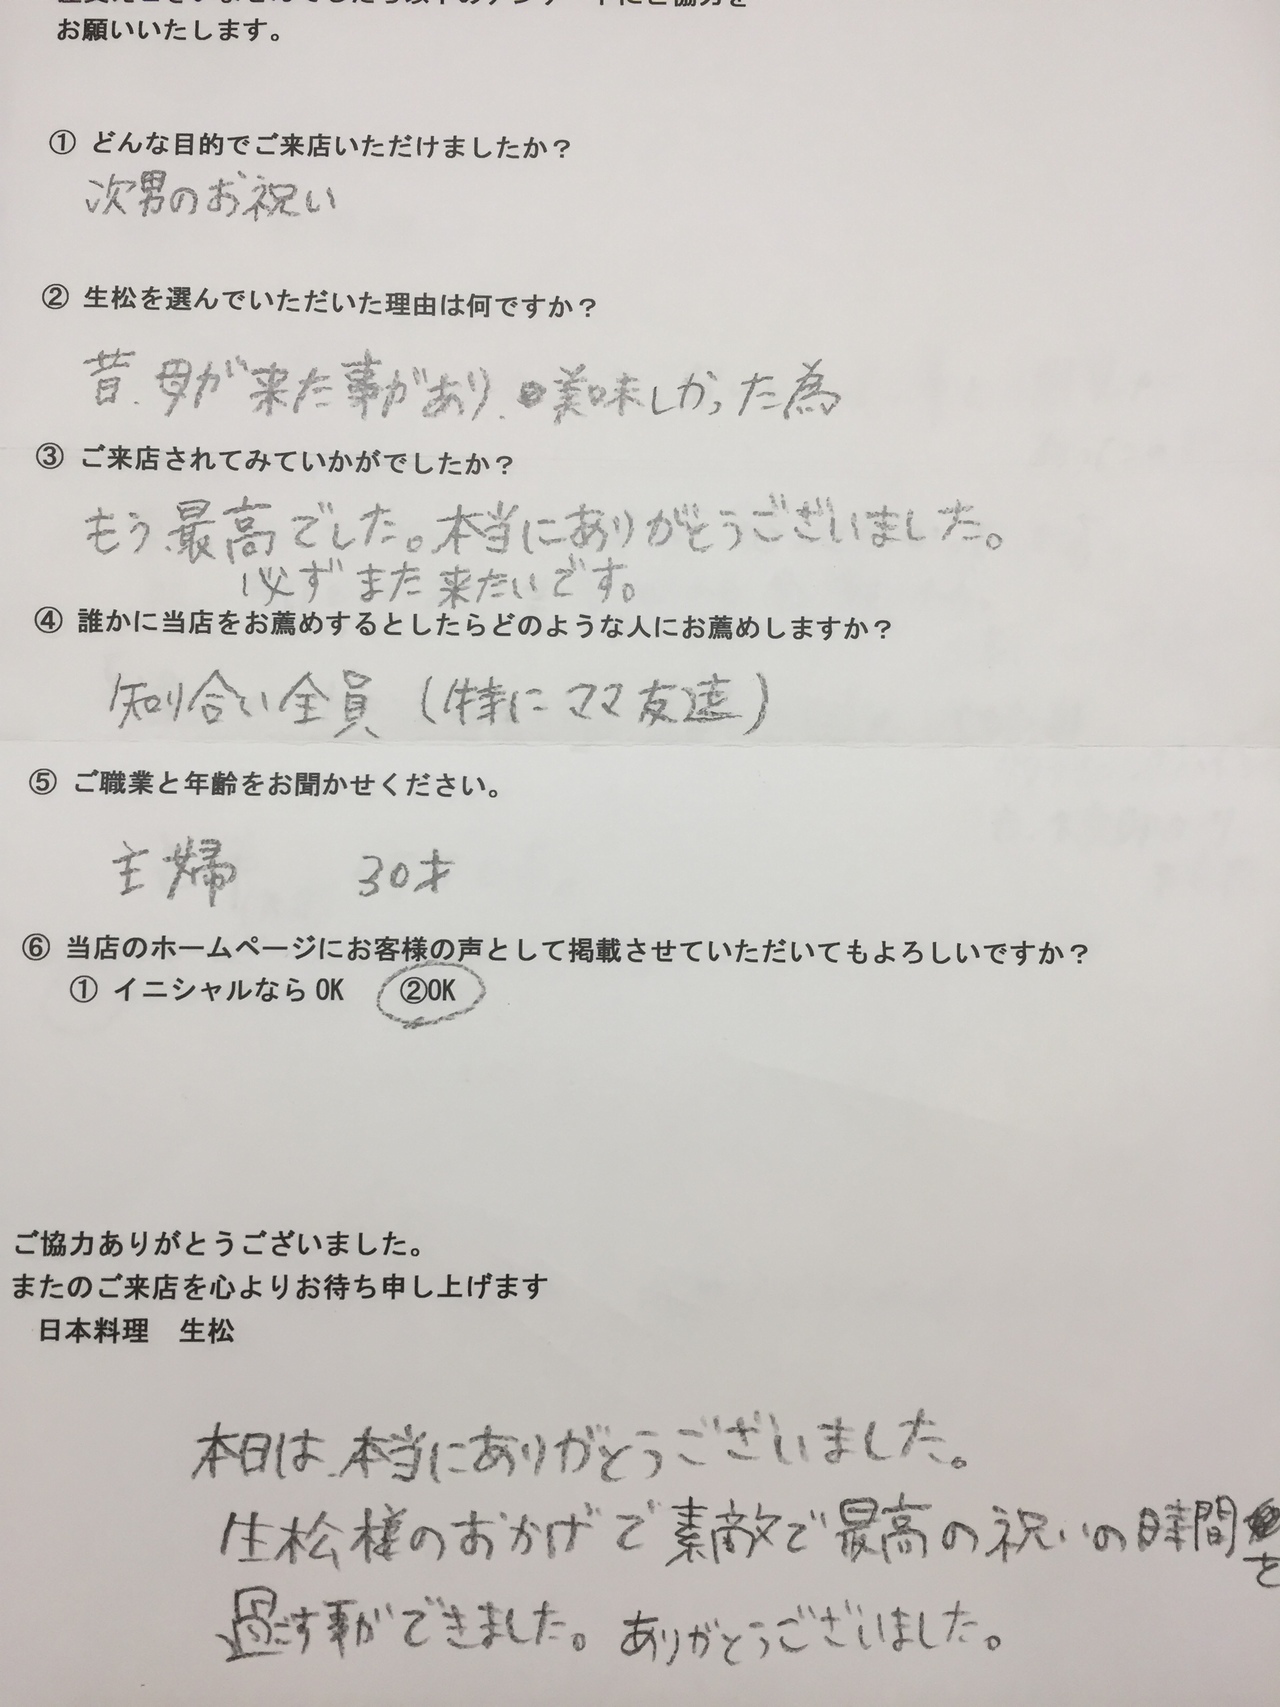 お願いいたします。
① どんな目的でご来店いただけましたか？
次男のお祝い
② 生松を選んでいただいた理由は何ですか？
昔、母が来た事があり、美味しかった為
③ ご来店されてみていかがでしたか？
もう、最高でした。本当にありがとうございました。
必ずまた来たいです。
④ 誰かに当店をお薦めするとしたらどのような人にお薦めしますか？
知り合い全員（特にママ友達）
⑤ ご職業と年齢をお聞かせください。
主婦 30才
⑥ 当店のホームページにお客様の声として掲載させていただいてもよろしいですか？
① イニシャルならOK ②OK
ご協力ありがとうございました。
またのご来店を心よりお待ち申し上げます
日本料理 生松
本日は、本当にありがとうございました。
生松様のおかげで素敵で最高の祝いの時間を
過ごす事ができました。ありがとうございました。